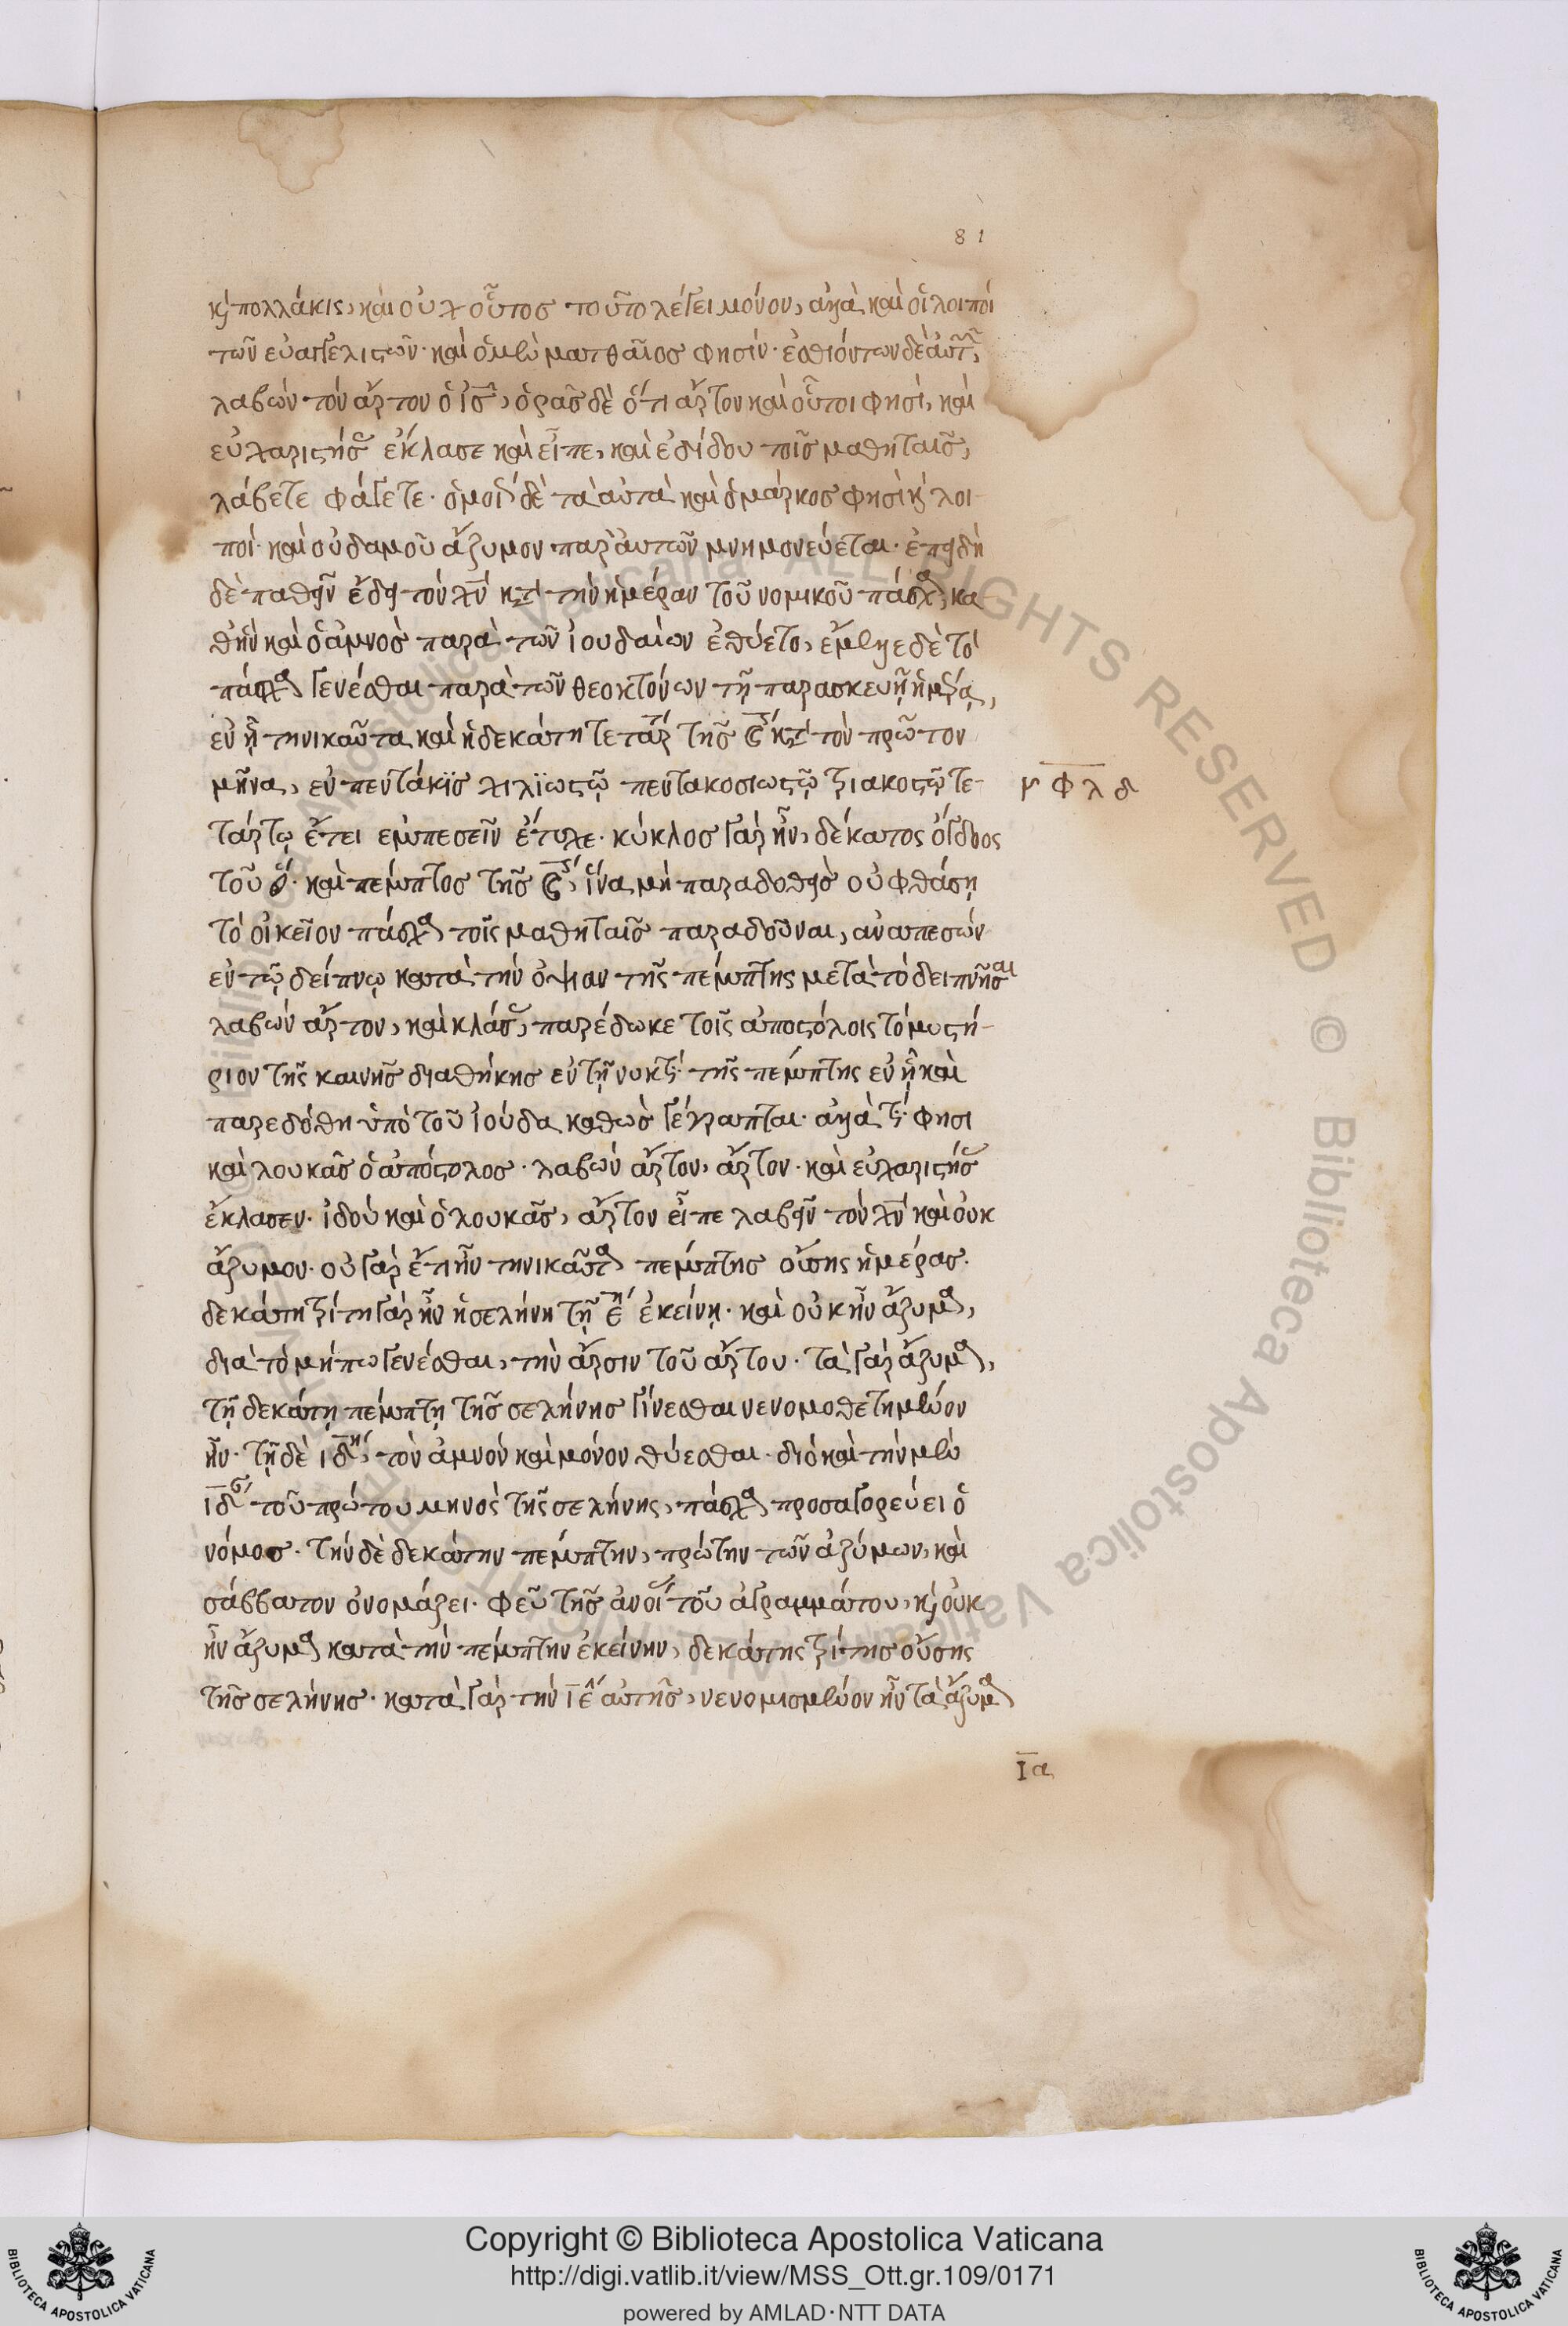 81
κ(αὶ) πολλάκις, καὶ οὐχ οὗτος τοῦτο λέγει μόνον, ἀλλὰ καὶ οἱ λοιποὶ
τῶν εὐαγγελιστῶν· καὶ ὁ μὲν ματθαῖος φησίν· ἐσθιόντων δὲ αὐτῶν,
λαβὼν τὸν ἄρτον ὁ ις, ὁρᾶς δὲ ὅτι ἄρτον καὶ οὗτοι φησὶ, καὶ
εὐχαριστήσας ἔκλασε καὶ εἶπε, καὶ ἐδίδου τοῖς μαθηταῖς,
λάβετε φάγετε· ὁμοί δὲ τὰ αὐτὰ καὶ ὁ μάρκος φησὶ κ(αὶ) λοι-
ποί· καὶ οὐδαμοῦ ἄζυμον παρ' αὐτῶν μνημονεύεται· ἐπειδὴ
δὲ παθεῖν ἔδει τὸν χν κατὰ τὴν ἡμέραν τοῦ νομικοῦ πάσχα, κα
θ' ἣν καὶ ὁ ἀμνὸς παρὰ τῶν ἰουδαίων ἐθύετο, ἔμελλε δὲ τὸ
πάσχα γενέσθαι παρὰ τῶν θεοκτόνων τῇ παρασκευῇ ἡμέρᾳ,
ἐν ᾗ τηνικαῦτα καὶ ἡ δεκάτη τετάρτη τῆς ϛ κατὰ τὸν πρῶτον
μῆνα, ἐν πεντάκϊς χιλϊωστῷ πεντακοσιωστῷ τριακοστῷ τε-
͵εφλδ
τάρτῳ ἔτει ἐμπεσεῖν ἔτυχε· κύκλος γὰρ ἦν, δέκατος ὄγδοος
τοῦ · καὶ πέμπτος τῆς ϛ, ἵνα μὴ παραδοθεὶς οὐ φθάσῃ
τὸ οἰκεῖον πάσχα τοῖς μαθηταῖς παραδοῦναι, ἀναπεσὼν
ἐν τῷ δείπνῳ κατὰ τὴν ὀψίαν τῆς πέμπτης μετὰ τὸ δειπνῆσαι
λαβὼν ἄρτον, καὶ κλάσας, παρέδωκε τοῖς ἀποστόλοις τὸ μυστή-
ριον τῆς καινῆς διαθήκης ἐν τῇ νυκτὶ τῆς πέμπτης ἐν ᾗ καὶ
παρεδόθη ὑπὸ τοῦ ἰούδα καθὼς γέγραπται· ἀλλὰ τί φησι
καὶ λουκᾶς ὁ ἀπόστολος· λαβὼν ἄρτον, ἄρτον· καὶ εὐχαριστήσας
ἔκλασεν· ἰδοὺ καὶ ὁ λουκᾶς, ἄρτον εἶπε λαβεῖν τὸν χν καὶ οὐκ
ἄζυμον· οὐ γὰρ ἔτι ἦν τηνικαῦτα πέμπτης οὔσης ἡμέρας·
δεκάτη τρίτη γὰρ ἦν ἡ σελήνη τῇ ε ἐκείνῃ· καὶ οὐκ ἦν ἄζυμα,
διὰ τὸ μήπω γενέσθαι, τὴν ἄρσιν τοῦ ἄρτου· τὰ γὰρ ἄζυμα,
τῇ δεκάτῃ πέμπτῃ τῆς σελήνης γίνεσθαι νενομοθετημένον
ἦν· τῇ δὲ ιδῃ, τὸν ἀμνὸν καὶ μόνον θύεσθαι· διὸ καὶ τὴν μὲν
ιδ τοῦ πρώτου μηνὸς τῆς σελήνης, πάσχα προσαγορεύει ὁ
νόμος· τὴν δὲ δεκάτην πέμπτην, πρώτην τῶν ἀζύμων, καὶ
σάββατον ὀνομάζει· φεῦ τῆς ἀνοίας τοῦ ἀγραμμάτου, κ(αὶ) οὐκ
ἦν ἄζυμα κατὰ τὴν πέμπτην ἐκείνην, δεκάτης τρίτης οὔσης
τῆς σελήνης· κατὰ γὰρ τὴν ιε αὐτῆς, νενομισμένον ἦν τὰ ἄζυμα
ια
Copyright © Biblioteca Apostolica Vaticana
http://digi.vatlib.it/view/MSS_Ott.gr.109/0171
powered by AMLAD·NTT DATA